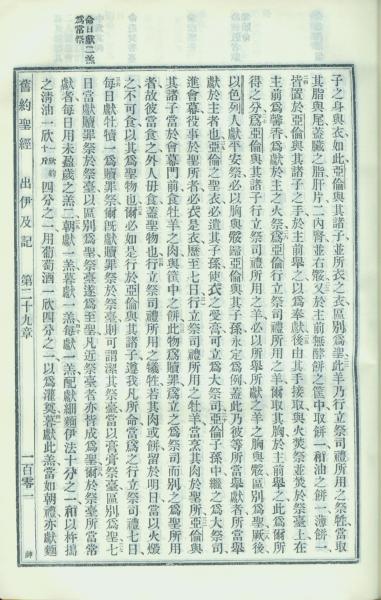 命日獻二羔
爲常祭
子之身與衣如此亞倫與其諸子並所衣之衣區別爲聖此羊乃行立祭司禮所用之祭牲當取
其脂與尾蓋臟之脂肝片二內腎並右骽又於主前無酵餅之筐中取餅一和油之餅一薄餅一
皆置於亞倫與其諸子之手於主前舉之以爲奉獻後由其手接取與火焚祭並焚於祭臺上在
主前爲馨香爲獻於主之火祭爲亞倫行立祭司禮所用之羊爾取其胸於主前舉之此爲爾所
得之分爲亞倫與其諸子行立祭司禮所用之羊必以所舉所獻之羊之胸與骽區別爲聖厥後
以色列人獻平安祭必以胸與骽歸亞倫與其子孫永定爲例蓋此乃彼等所當舉獻者所當舉
獻於主者也亞倫之聖衣必遺其子孫使衣之受膏可立爲大祭司亞倫子孫中繼之爲大祭司
進會幕役事於聖所者必衣是衣歷至七日行立祭司禮所用之牡羊當烹其肉於聖所亞倫與
其諸子當於會幕門前食牡羊之肉與筐中之餅此物爲贖罪爲立之爲祭司而別之爲聖所用
者故彼當食之外人毋食蓋聖物也行立祭司禮所用之犧牲若其肉或餅留於明日當以火燬
之不可食以其爲聖物也爾必如是行於亞倫與其諸子遵我凡所命當爲之行立祭司禮七日
每日獻牡犢一爲贖罪祭爾旣獻贖罪祭於祭臺則可謂潔其祭臺當以膏膏祭臺區別爲聖七
日當獻贖罪祭於祭臺以區別爲聖祭臺遂爲至聖凡近祭臺者亦皆成爲聖爾於祭臺所當常
獻者每日用未盈歲之羔二朝獻一羔暮獻一羔每獻一羔配獻細麵伊法十分之一和以杵搗
之清油一欣四分之一用葡萄酒一欣四分之一以爲灌奠暮獻此羔當如朝禮亦獻麵
舊約聖經 出伊及記 第二十九章 一百零一